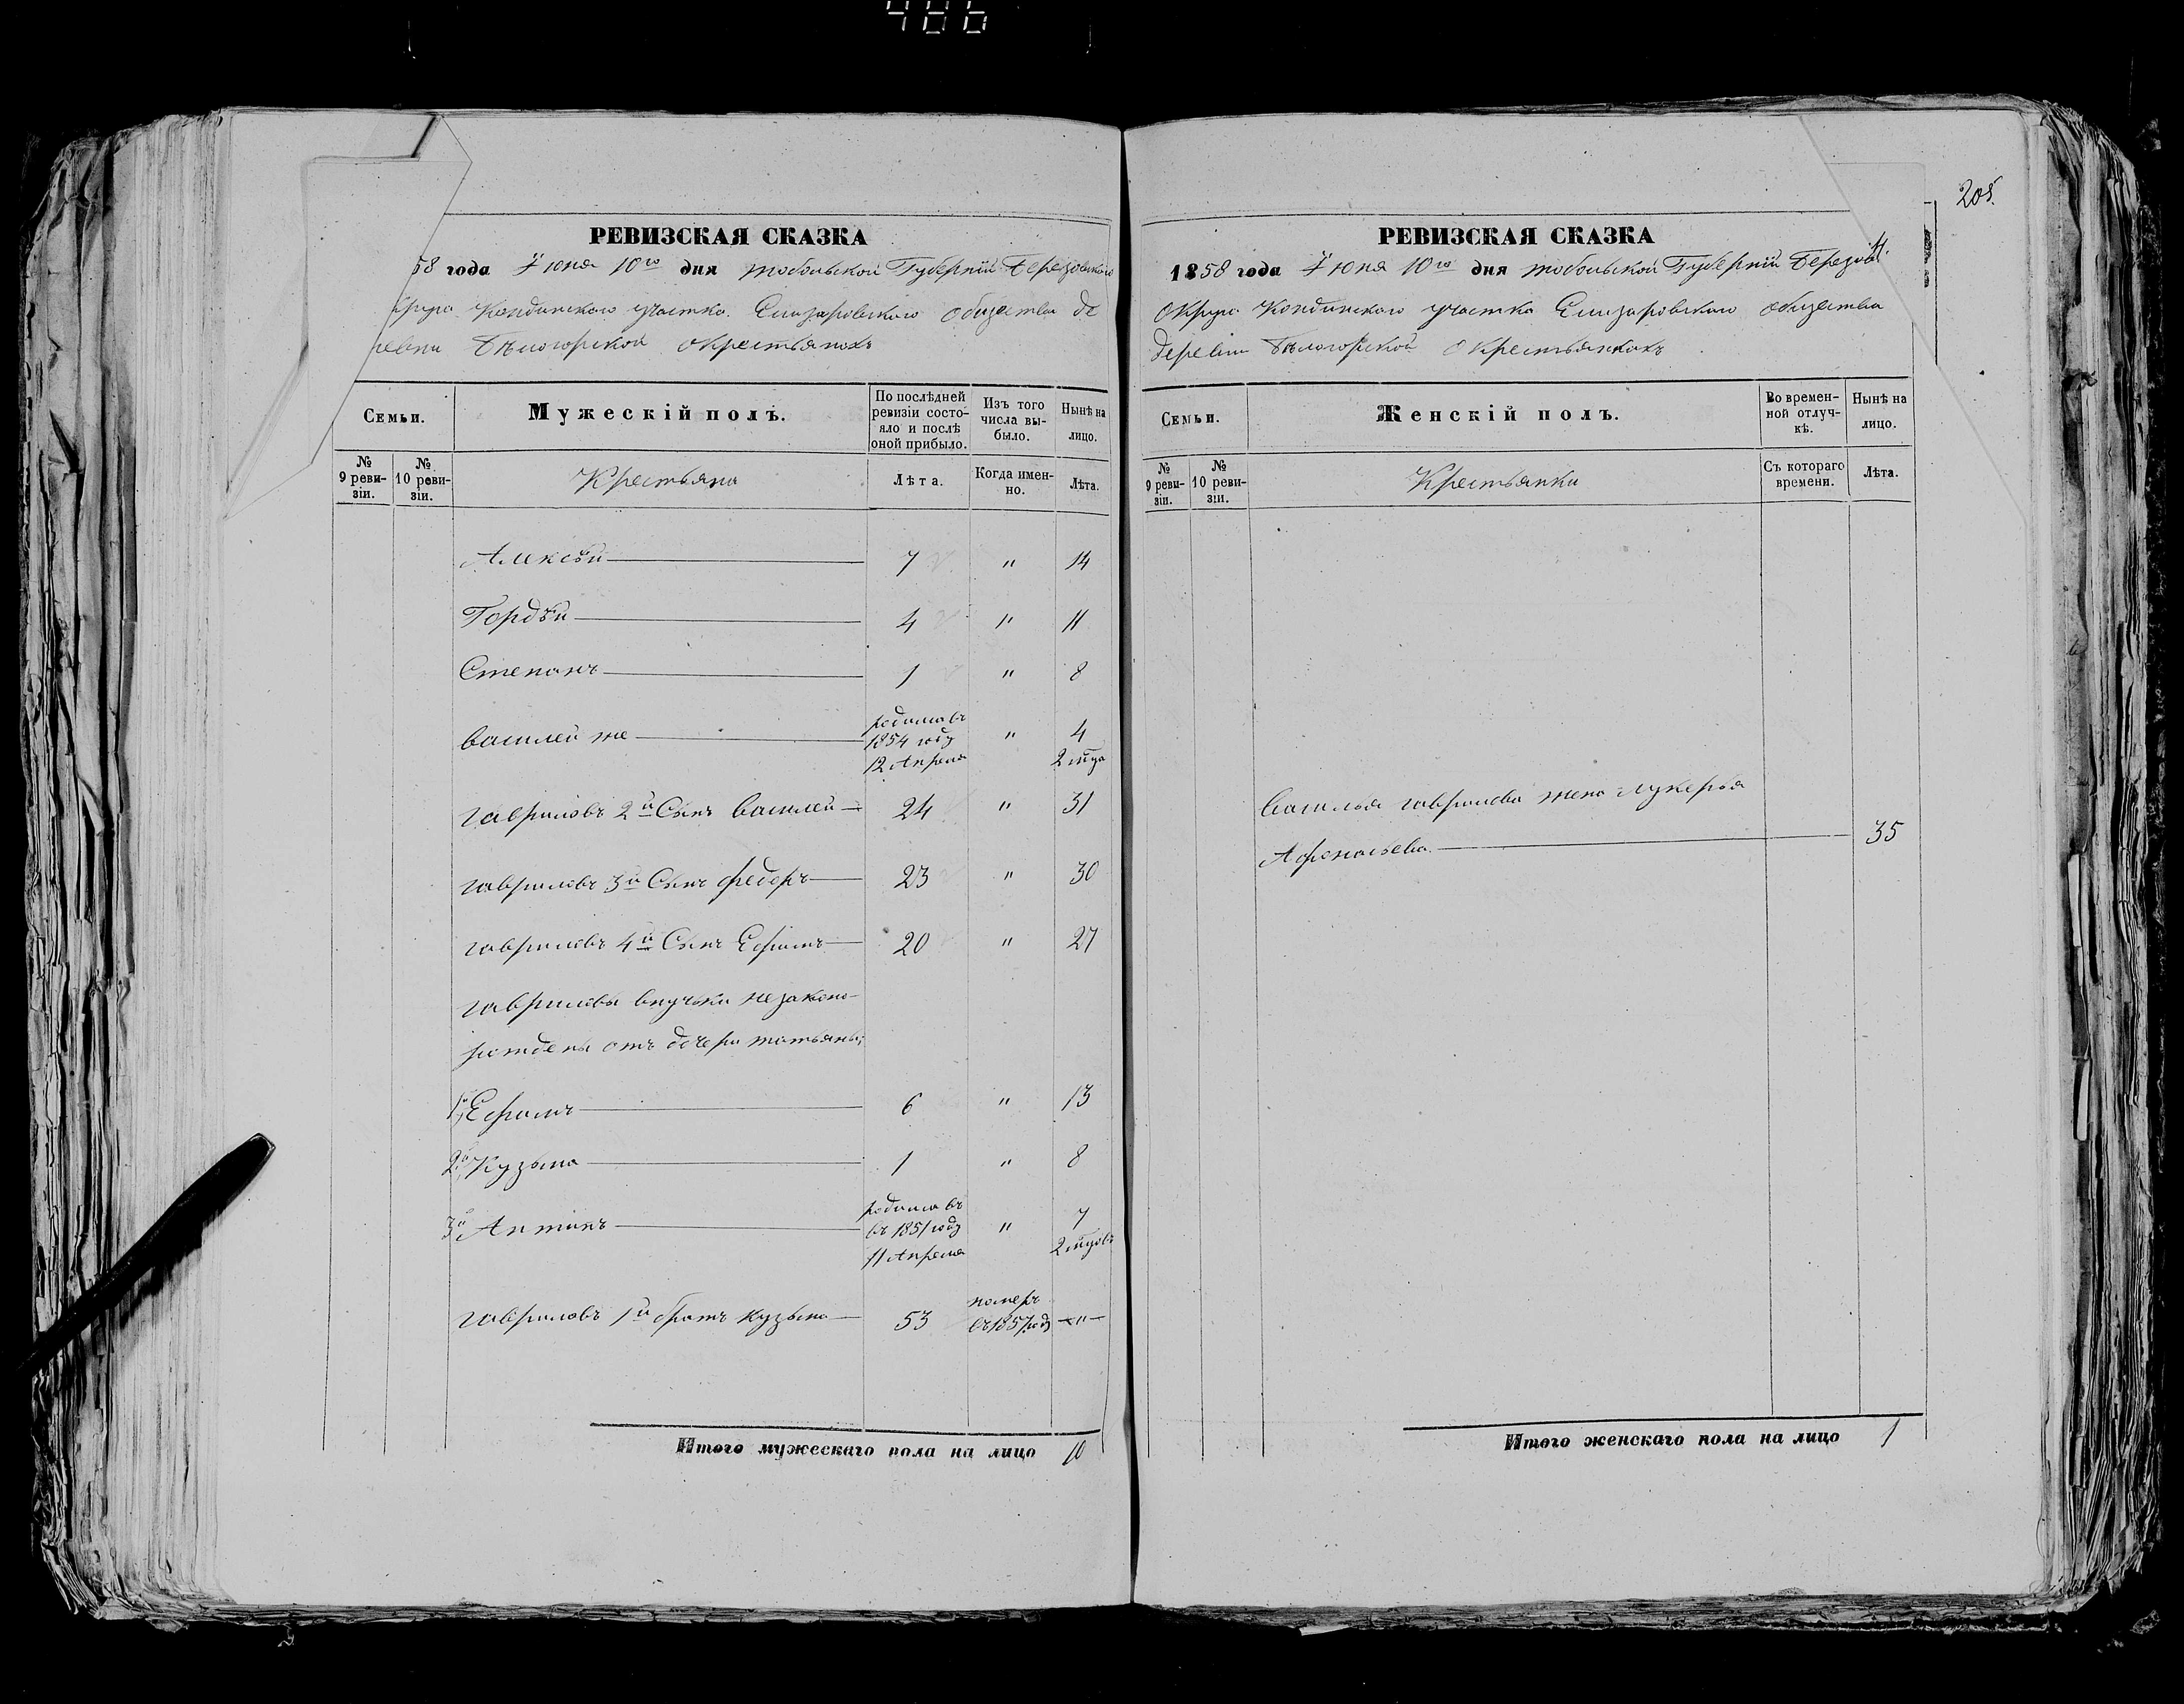 486
РЕВИЗСКАЯ СКАЗКА
58 года Іюня 10го дня тобольской Губерніи Березовскаго
округа Кондинскаго участка Елизаровскаго общества де
ревни Бѣлогорской О крестьянахъ
Семьи.
Мужескій полъ.
По послѣдней ревизіи состо-
яло и послѣ
оной прибыло.
Изъ того
числа вы-
было.
Нынѣ на
лицо.
№
9 реви-
зіи.
№
10 реви-
зіи.
Крестьяна
Лѣта.
Когда имен-
но.
Лѣта.
Алексѣй 7 " 14
Гордѣй 4 " 11
Степанъ 1 " 8
василей же родился въ 1854 году 12 Апреля " 4 2 мца
гавриловъ 2й Сынъ василей 24 " 31
гавриловъ 3й Сынъ федоръ 23 " 30
гавриловъ 4й Сынъ Ефимъ 20 " 27
гавриловы внучки незаконо-
рождены отъ дочери татьяны;
1й Ефимъ 6 " 13
2й Кузьма 1 " 8
3й Антипъ родился въ въ 1851 году 11 Апреля " 7 2 мцовъ
гавриловъ 1й братъ кузьма 53 померъ въ 1857 году "
Итого мужескаго пола на лицо 10
205.
РЕВИЗСКАЯ СКАЗКА
1858 года Іюня 10го дня тобольской Губерніи Березов
Округа Кондинскаго участка Елизаровскаго общества
деревни Бѣлогорской О крестьянкахъ
Семьи.
Женскій полъ.
Во времен-
ной отлуч-
кѣ.
Нынѣ на
лицо.
№
9 реви-
зіи.
№
10 реви-
зіи.
Крестьянки
Съ котораго
времени.
Лѣта.
Василья гаврилова жена лукерья
Афонасьева 35
Итого женскаго пола на лицо 1